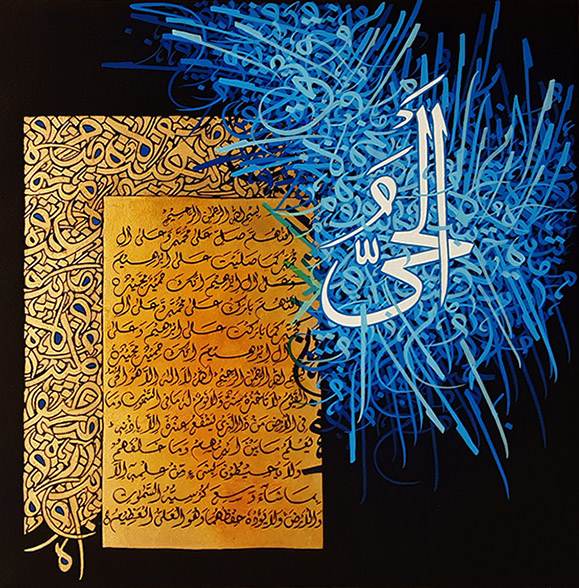 الحيّ
بسم الله الرحمن الرحيم
اللهم صل على محمد وعلى ال
محمد كما صليت على ابراهيم
وعلى ال ابراهيم انك حميد مجيد
اللهم بارك على محمد وعلى ال
محمد كما باركت على ابراهيم وعلى
ال ابراهيم انك حميد مجيد
بسم الله الرحمن الرحيم الله لا اله الا هو الحي
القيوم لا تاخذه سنة ولا نوم له ما في السموات وما
في الارض من ذا الذي يشفع عنده الا باذنه
يعلم ما بين ايديهم وما خلفهم
ولا يحيطون بشيء من علمه الا
بما شاء وسع كرسيه السموات
والارض ولا يؤده حفظهما وهو العلي العظيم